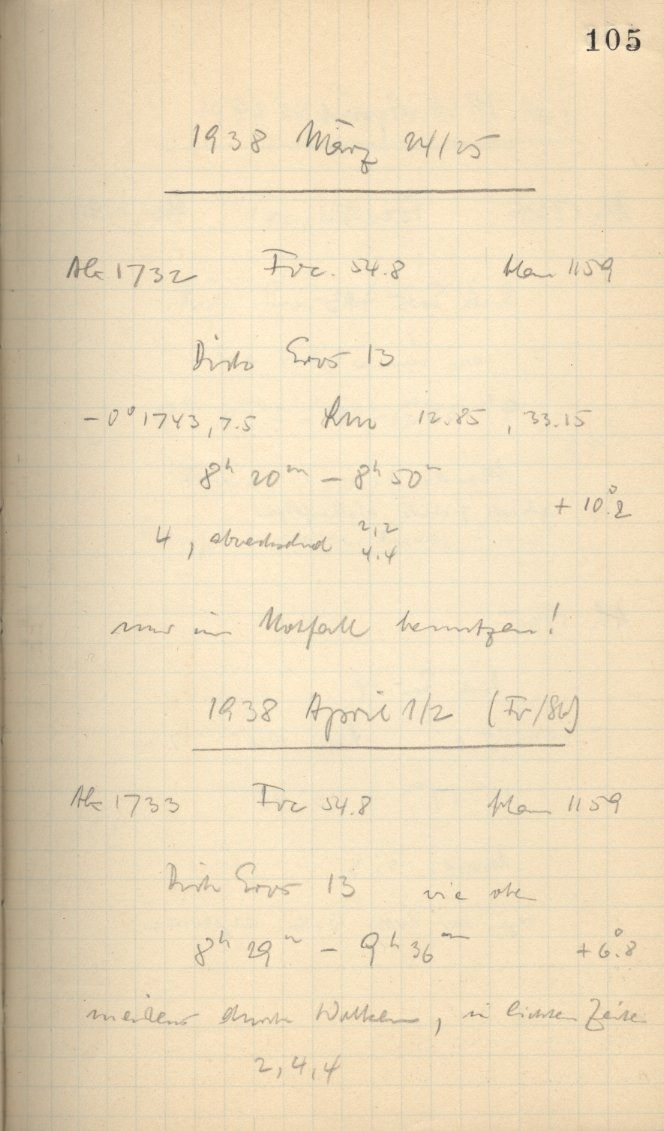 105
1938 März 24/25
1732 Foc. 54.8 1159
Eros 13
-0° 1743, 7.5 12.85, 33.15
8h 20m - 8h 50m
+10°.2
4, abwechselnd 2,2
4.4
nur im Notfall benutzen!
1938 April 1/2 (Fr/Sb)
1733 Foc 54.8 1159
Eros 13 wie oben
8h 29m - 9h 36m +6°.8
meistens durch Wolken, in lichten
2, 4, 4